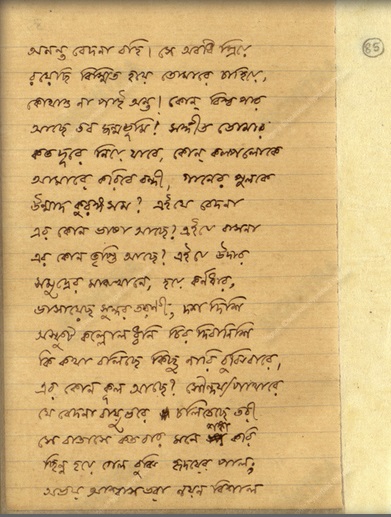 85
অনন্ত বেদনা বহি। সে অবধি প্রিয়ে
রয়েছি বিস্মিত হয়ে তোমারে চাহিয়ে,
কোথাও না পাই অন্ত! কোন্ বিশ্বপার
আছে তব জন্মভূমি! সঙ্গীত তোমার
কত দূরে নিয়ে যাবে, কোন্ কল্পলোকে
আমারে করিবে বন্দী, গানের পুলকে
উন্মাদ কুরঙ্গ সম? এই যে বেদনা
এর কোন ভাষা আছে? এই যে বাসনা
এর কোন তৃপ্তি আছে? এই যে উদার
সমুদ্রের মাঝখানে, হয়ে কর্ণধার,
ভাসায়েছ সুন্দর তরণী, দশ দিশি
অস্ফুট কল্লোলধ্বনি চির দিবানিশি
কি কথা বলিছে কিছু নারি বুঝিবারে,
এর কোন কূল আছে? সৌন্দর্য্য পাথারে
যে বেদনা বায়ুভরে চলিতেছে তরী
সে বাতাসে কতবার মনে শঙ্কা করি
ছিন্ন হয়ে গেল বুঝি হৃদয়ের পাল;
অভয় আশ্বাসভরা নয়ন বিশাল